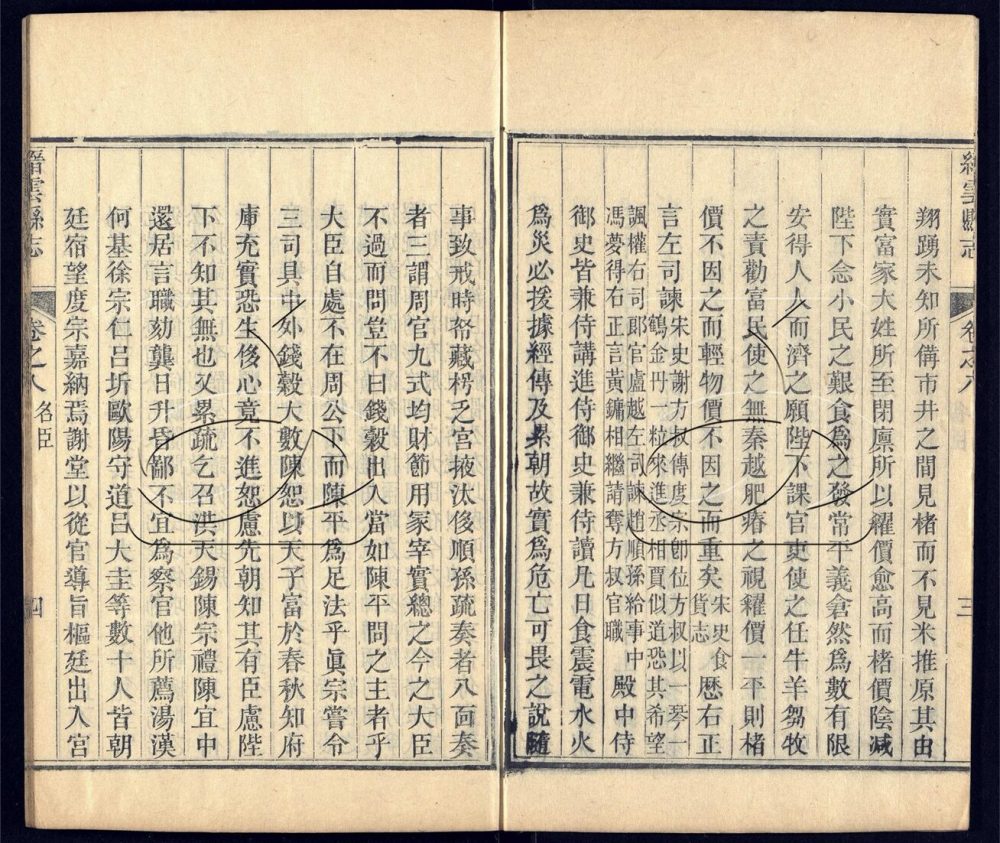 縉雲縣志
卷之八
三
翔踴未知所備市井之間見楮而不見米推原其由
實富家大姓所至閉廪所以糴價愈高而楮價陰减
陛下念小民之艱食爲之發常平義倉然爲數有限
安得人人而濟之願陛下課官吏使之任牛羊芻牧
之責勸富民使之無秦越肥瘠之視糴價一平則楮
價不因之而輕物價不因之而重矣宋史食
貨志歷右正
言左司諫宋史謝方叔傳度宗卽位方叔以一琴一
鶴金丹一粒來進丞相賈似道恐其希望
諷權右司郎官盧越左司諫趙順孫給事中
馮夢得右正言黃鏞相繼請奪方叔官職殿中侍
御史皆兼侍講進侍御史兼侍讀凡日食震電水火
爲災必援據經傳及累朝故實爲危亡可畏之說隨
事致戒時帑藏枵乏宫掖汰侈順孫疏奏者八面奏
者三謂周官九式均財節用冢宰實總之今之大臣
不過而問豈不曰錢穀出入當如陳平問之主者乎
大臣自處不在周公下而陳平爲足法乎眞宗嘗令
三司具中外錢穀大數陳恕以天子富於春秋知府
庫充實恐生侈心竟不進恕慮先朝知其有臣慮陛
下不知其無也又累疏乞召洪天錫陳宗禮陳宜中
還居言職劾龔日升昏鄙不宜爲察官他所薦湯漢
何基徐宗仁呂圻歐陽守道呂大圭等數十人皆朝
廷宿望度宗嘉納焉謝堂以從官導旨樞廷出入宮
縉雲縣志
卷之八 名臣
四